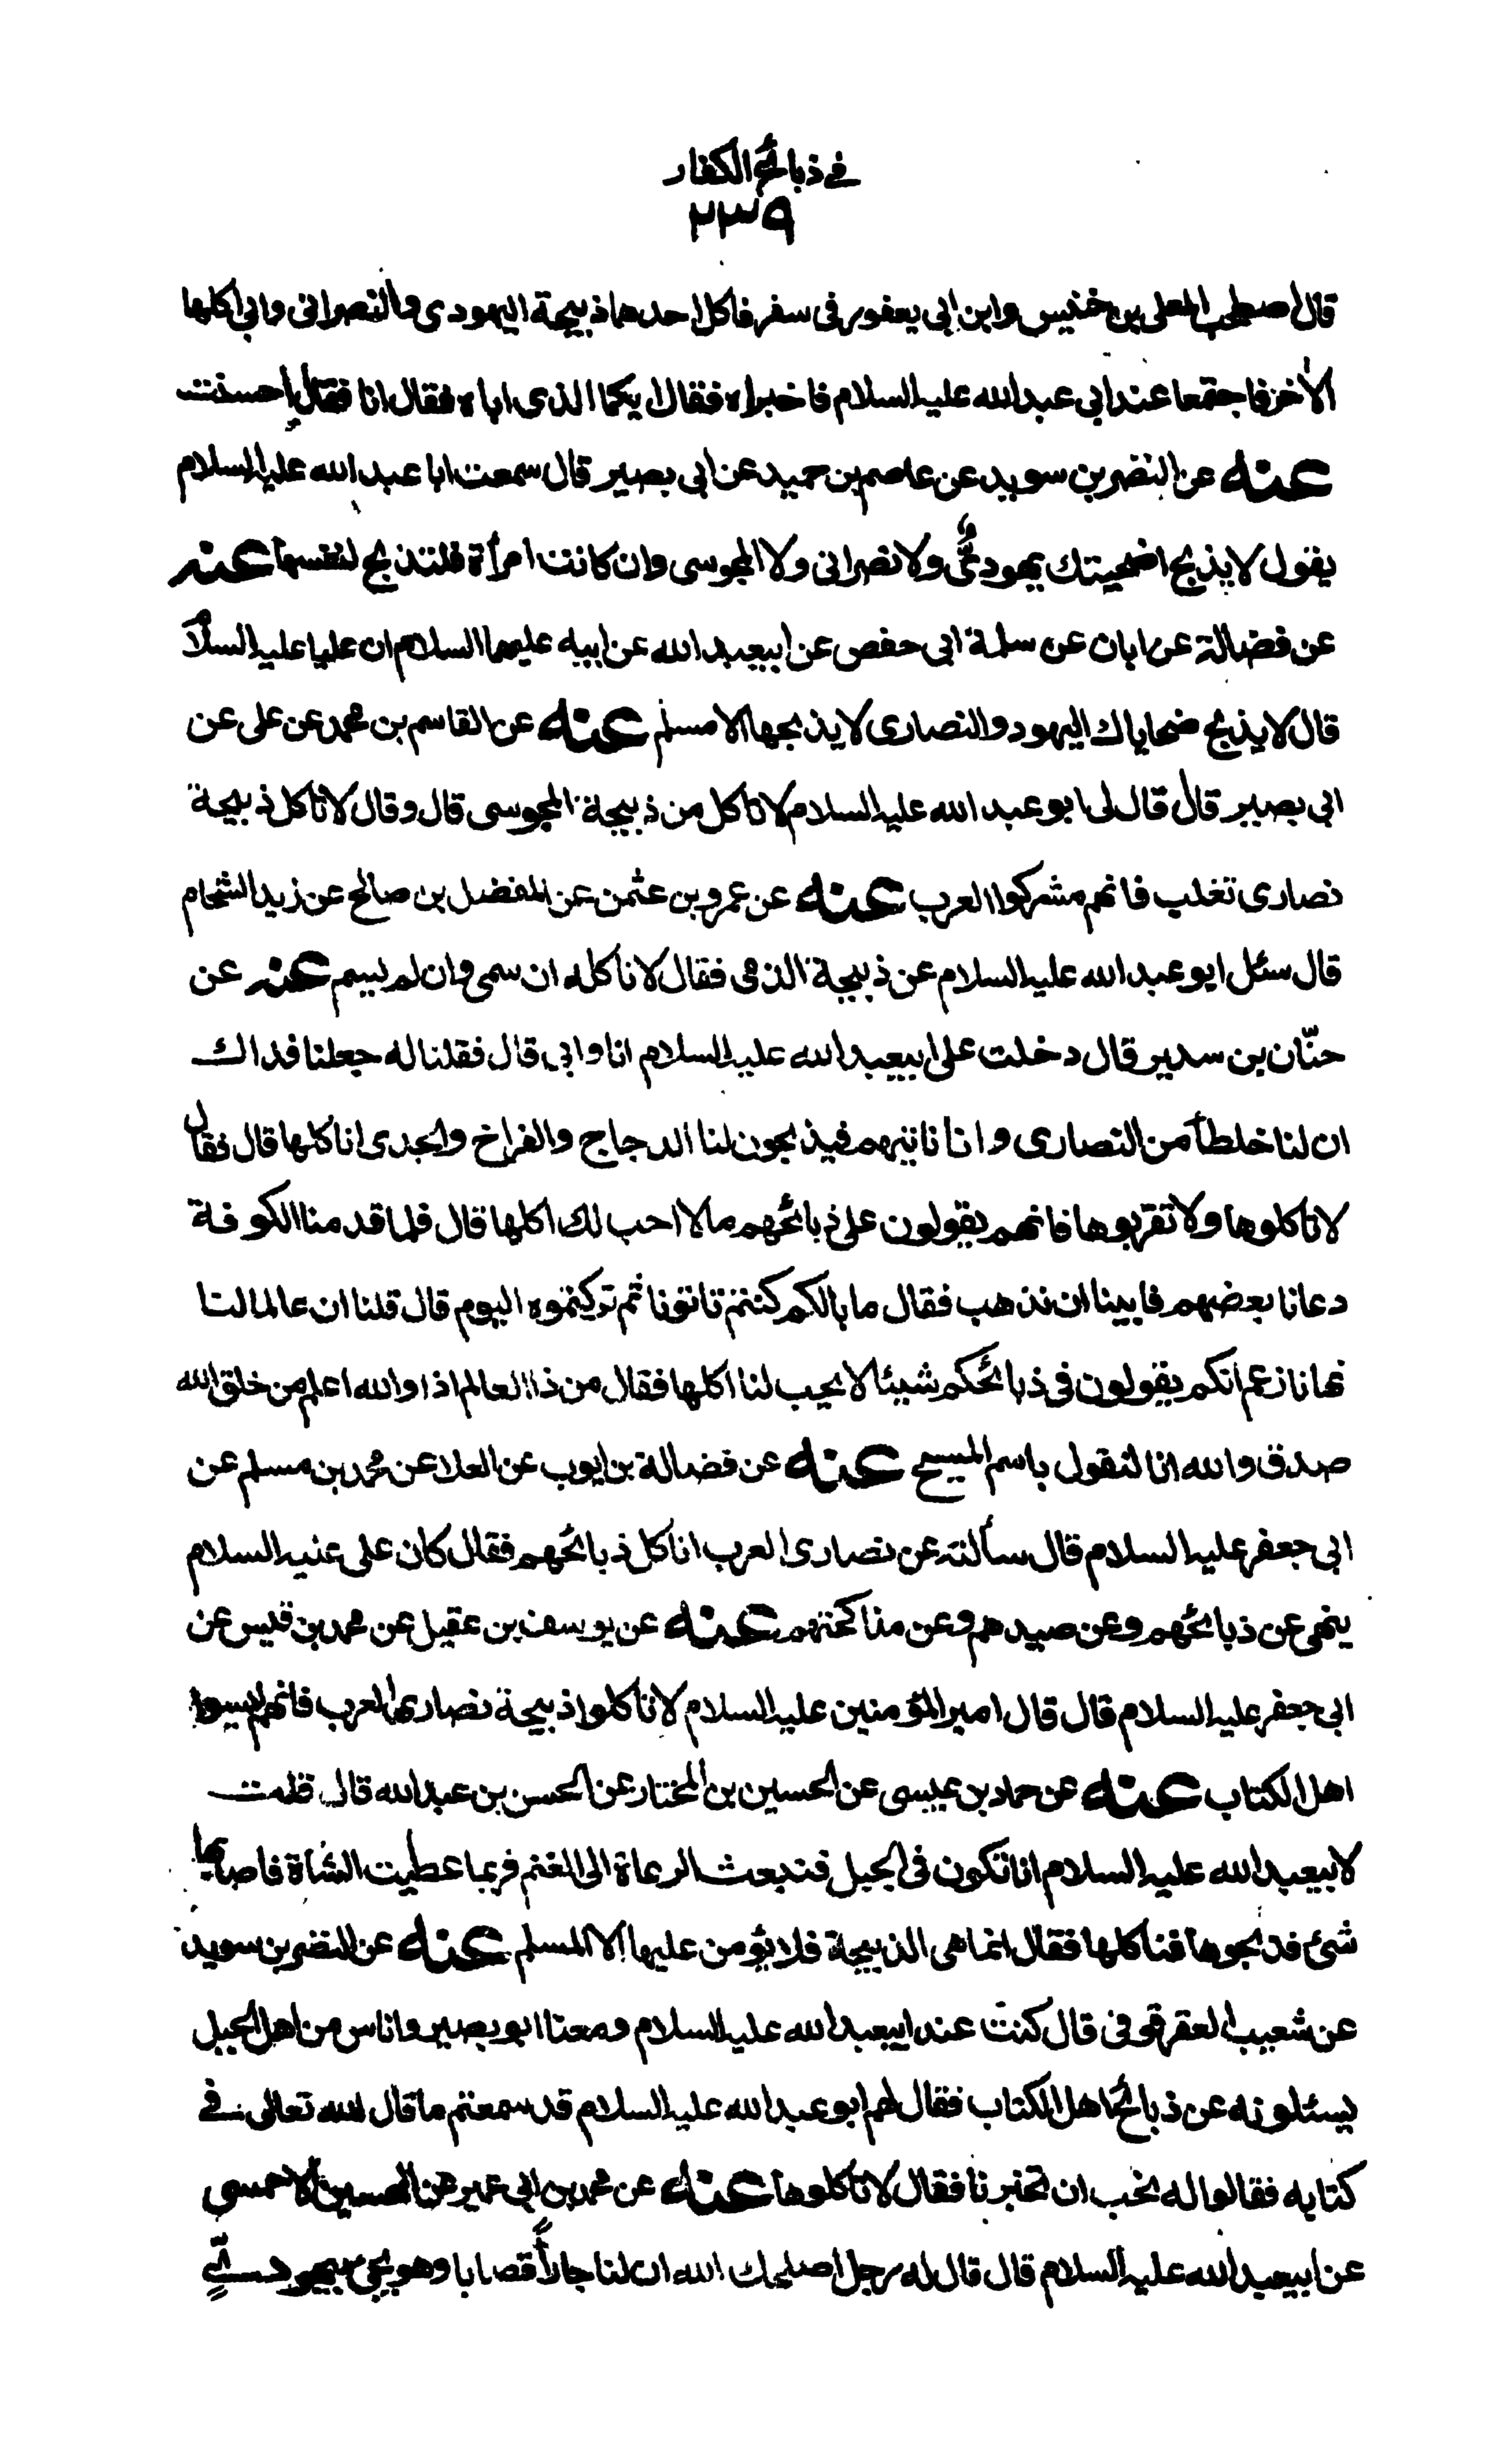 في ذبائح الكفار
٢٣٩
قال اصطحب المعلى بن خنيس وابن ابي يعفور في سفر فاكل احدهما ذبيحة اليهودى والنصرانى وابى اكلها
الآخر فاجتمعا عند ابى عبد الله عليه السلام فاخبراه فقال ايكما الذى اباه فقال انا فقال احسنت
عنه عن النضر بن سويد عن عاصم بن حميد عن ابى بصير قال سمعت ابا عبد الله عليه السلام
يقول لا يذبح اضحيتك يهودىّ ولا نصرانى ولا المجوسى وان كانت امرأة فلتذبح لنفسها عنه
عن فضالة عن ابان عن سلمة ابى حفص عن ابيعبد الله عن ابيه عليهما السلام ان عليا عليه السلام
قال لا يذبح ضحاياك اليهود والنصارى لا يذبحها الا مسلم عنه عن القاسم بن محمد عن على عن
ابى بصير قال قال لى ابو عبد الله عليه السلام لا تاكل من ذبيحة المجوسى قال وقال لا تاكل ذبيحة
نصارى تغلب فانهم مشركوا العرب عنه عن عمرو بن عثمن عن المفضل بن صالح عن زيد الشحام
قال سئل ابو عبد الله عليه السلام عن ذبيحة الذمى فقال لا تاكله ان سمى وان لم يسم عنه عن
حنّان بن سدير قال دخلت على ابيعبد الله عليه السلام انا وابى قال فقلنا له جعلنا فداك
ان لنا خلطآ من النصارى وانا ناتيهم فيذبحون لنا الدجاج والفراخ والجدى اناكلها قال فقال
لا تاكلوها ولا تقربوها فانهم يقولون على ذبائحهم ما لا احب لك اكلها قال فلما قدمنا الكوفة
دعانا بعضهم فابينا ان نذهب فقال ما بالكم كنتم تاتونا ثم تركتموه اليوم قال قلنا ان عالما لنا
نهانا زعم انكم يقولون فى ذبائحكم شيئا لا يحب لنا اكلها فقال من ذا العالم اذا والله اعلم من خلق الله
صدق والله انا لنقول باسم المسيح عنه عن فضالة بن ايوب عن العلا عن محمد بن مسلم عن
ابى جعفر عليه السلام قال سألته عن نصارى العرب اناكل ذبائحهم فقال كان على عليه السلام
ينهى عن ذبائحهم وعن صيدهم وعن مناكحتهم عنه عن يوسف بن عقيل عن محمد بن قيس عن
ابى جعفر عليه السلام قال قال امير المؤمنين عليه السلام لا تاكلوا ذبيحة نصارى العرب فانهم ليسوا
اهل الكتاب عنه عن حماد بن عيسى عن الحسين بن المختار عن الحسن بن عبد الله قال قلت
لابيعبد الله عليه السلام انا نكون فى الجبل فنبعث الرعاة الى الغنم فربما عطبت الشاة فاصابها
شئ فذبحوها فناكلها فقال انما هى الذبيحة فلا يؤمن عليها الا المسلم عنه عن النضر بن سويد
عن شعيب العقرقوفى قال كنت عند ابيعبد الله عليه السلام ومعنا ابو بصير واناس من اهل الجبل
يسئلونه عن ذبائح اهل الكتاب فقال لهم ابو عبد الله عليه السلام قد سمعتم ما قال الله تعالى فى
كتابه فقالوا له نحب ان تخبرنا فقال لا تاكلوها عنه عن محمد بن ابى عمير عن الحسين الاحمسى
عن ابيعبد الله عليه السلام قال قال له رجل اصلحك الله ان لنا جارآ قصابا وهو يجئ بيهودىّ